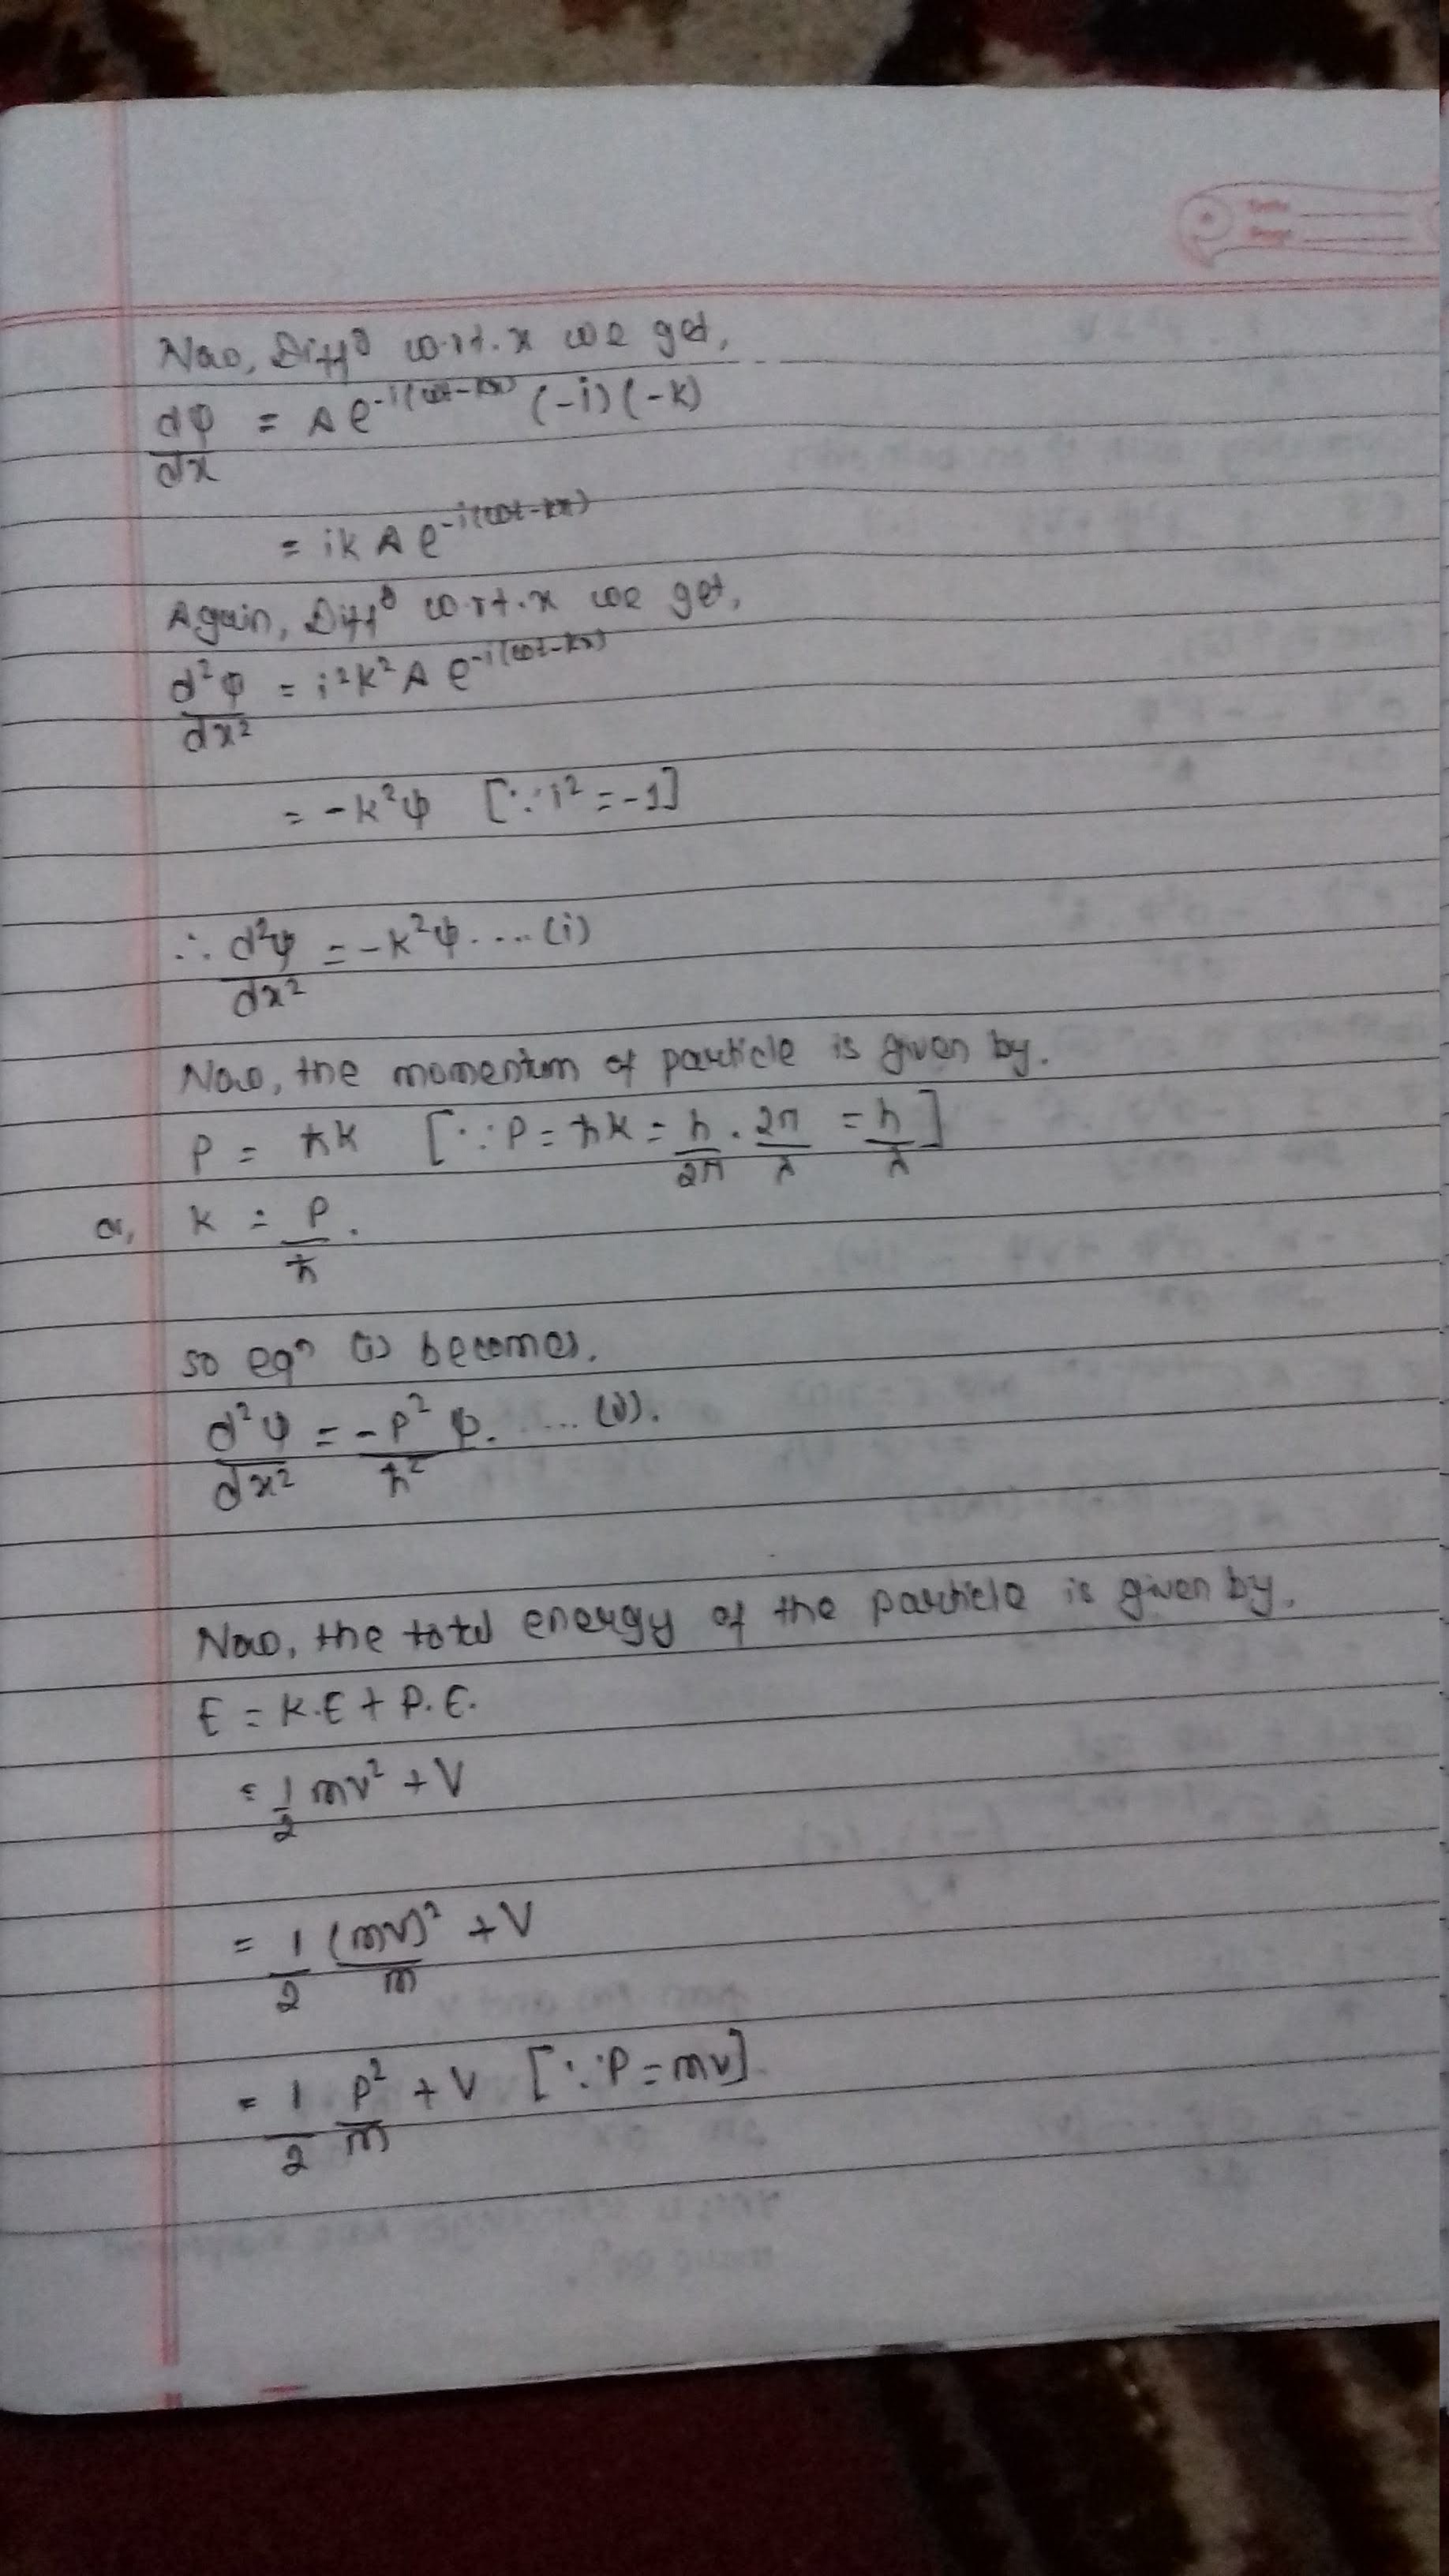 Now, Diffⁿ w.r.t. x we get,
dψ/dx = A e^-i(ωt-kx) (-i)(-k)
= ik A e^-i(ωt-kx)
Again, Diffⁿ w.r.t. x we get,
d²ψ/dx² = i²k² A e^-i(ωt-kx)
= -k²ψ [∵ i² = -1]
∴ d²ψ/dx² = -k²ψ .... (i)
Now, the momentum of particle is given by.
P = ħk [∵ P = ħk = h/2π . 2π/λ = h/λ]
or, k = P/ħ.
so eqⁿ (i) becomes.
d²ψ/dx² = -P²/ħ² ψ. .... (ii).
Now, the total energy of the particle is given by.
E = K.E + P.E.
= 1/2 mv² + V
= 1/2 (mv)²/m + V
= 1/2 P²/m + V [∵ P = mv]